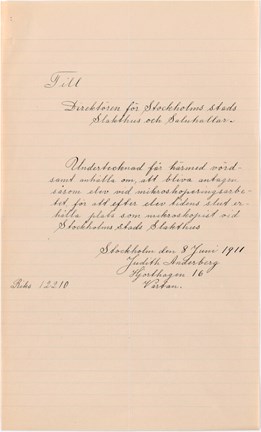 Till
Direktören för Stockholms stads
Slakthus och Saluhallar.
Undertecknad får härmed vörd-
samt anhålla om, att bliva antagen
såsom elev vid mikroskoperingsarbe-
tet, för att efter elev tidens slut er-
hålla plats som mikroskopist vid
Stockholms stads Slakthus
Stockholm den 8 Juni 1911
Judith Anderberg
Hjorthagen 16
Värtan.
Riks 12210